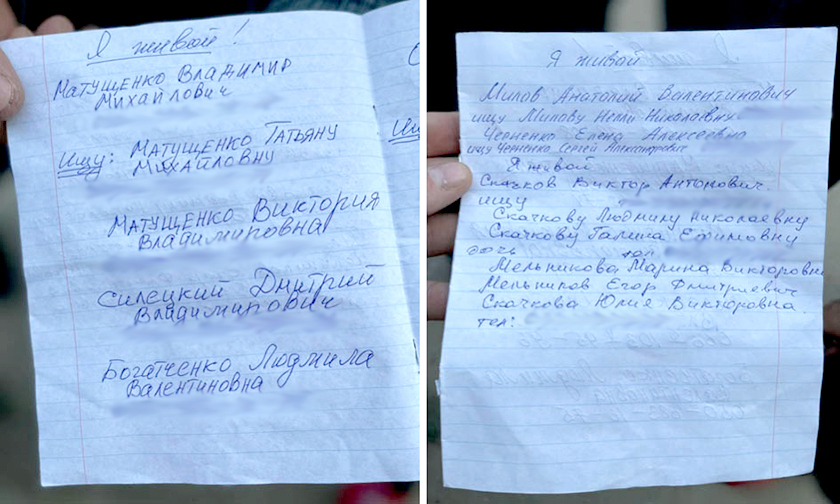 Я живой!
Матущенко Владимир
Михайлович
Ищу: Матущенко Татьяну
Михайловну
Матущенко Виктория
Владимировна
Силецкий Дмитрий
Владимирович
Богатченко Людмила
Валентиновна
Я живой
Милов Анатолий Валентинович
ищу Милову Нелли Николаевну
Черненко Елена Алексеевна
ищу Черненко Сергей Александрович
Я живой
Скачков Виктор Антонович.
ищу
Скачкову Людмилу Николаевну
Скачкову Галина Ефимовну
дочь тел
Мельникова Марина Викторовн
Мельников Егор Дмитриевич
Скачкова Юлия Викторовна.
тел: